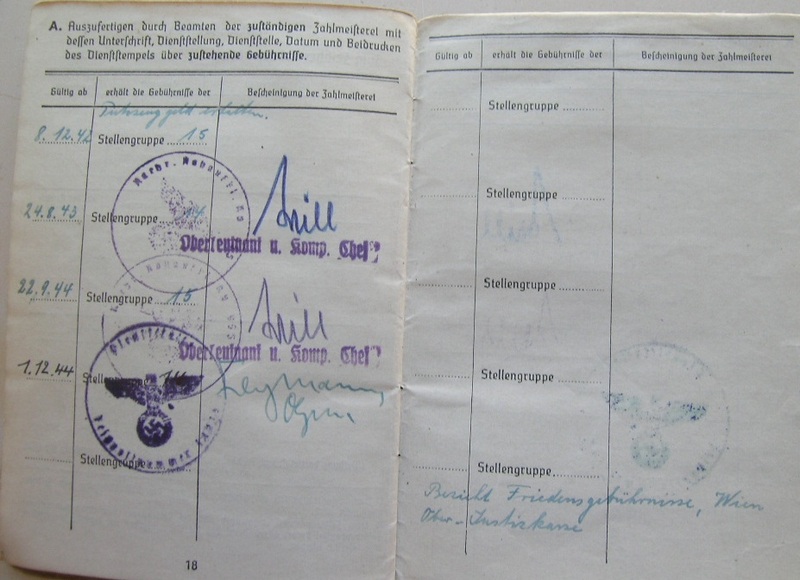 A. Auszufertigen durch Beamten der zuständigen Zahlmeisterei mit
dessen Unterschrift, Dienststellung, Dienststelle, Datum und Beidrucken
des Dienststempels über zustehende Gebührnisse.
Gültig ab erhält die Gebührnisse der Bescheinigung der Zahlmeisterei
8.12.42 Stellengruppe 15
24.8.43 Stellengruppe
Oberleutnant u. Komp. Chef
22.9.44 Stellengruppe 15
Oberleutnant u. Komp. Chef
1.12.44
Dienststelle
Stellengruppe
18
Gültig ab erhält die Gebührnisse der Bescheinigung der Zahlmeisterei
Stellengruppe
Stellengruppe
Stellengruppe
Stellengruppe
Stellengruppe
Bezieht Friedensgebührnisse, Wien
Ober-Justizkasse